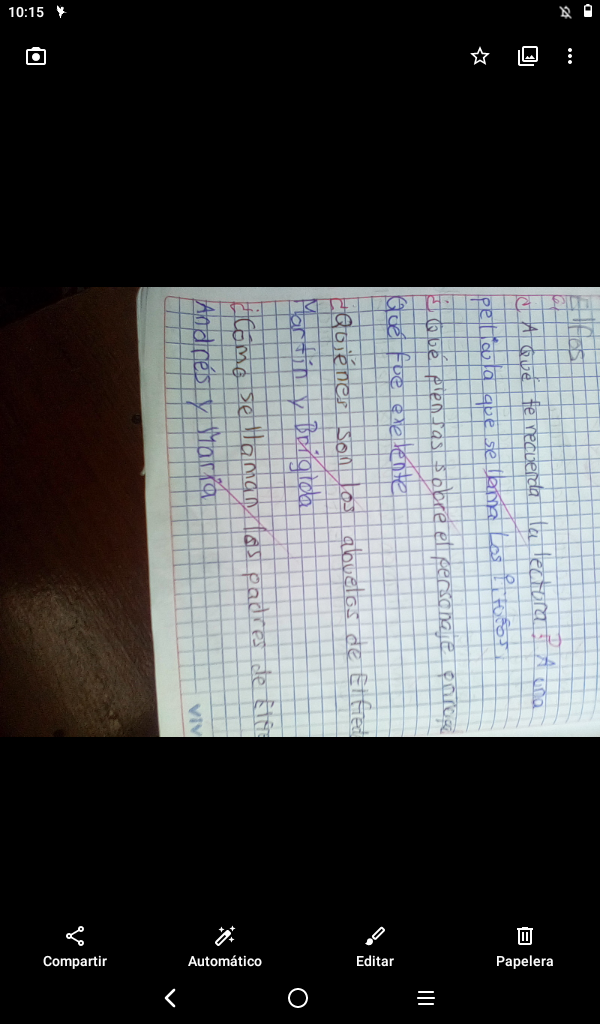 10:15
Elfos
¿A Qué te recuerda la lectura? A una
película que se llama Los Pitufos.
¿Qué piensas sobre el personaje
Qué fue exelente
¿Quiénes son los abuelos de Elfied
Martín y Brigida
¿Cómo se llaman los padres de Elfie
Andrés y María
VIV
Compartir
Automático
Editar
Papelera